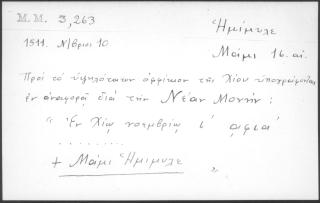 M.M. 3,263
Ἡμίμυλε
1511. Ν/βριου 10.
Μάμι 16. αἰ.
Πρὸ τὸ ὑψηλότατον ὀφφίκιον τῆς Χίου ὑπογράφονται
ἐν ἀναφορᾷ διὰ τὴν Νέαν Μονήν :
" Ἐν Χίῳ νοεμβρίῳ ι΄ αφια΄
. . . . . . . .
+ Μάμι Ἡμίμυλε "